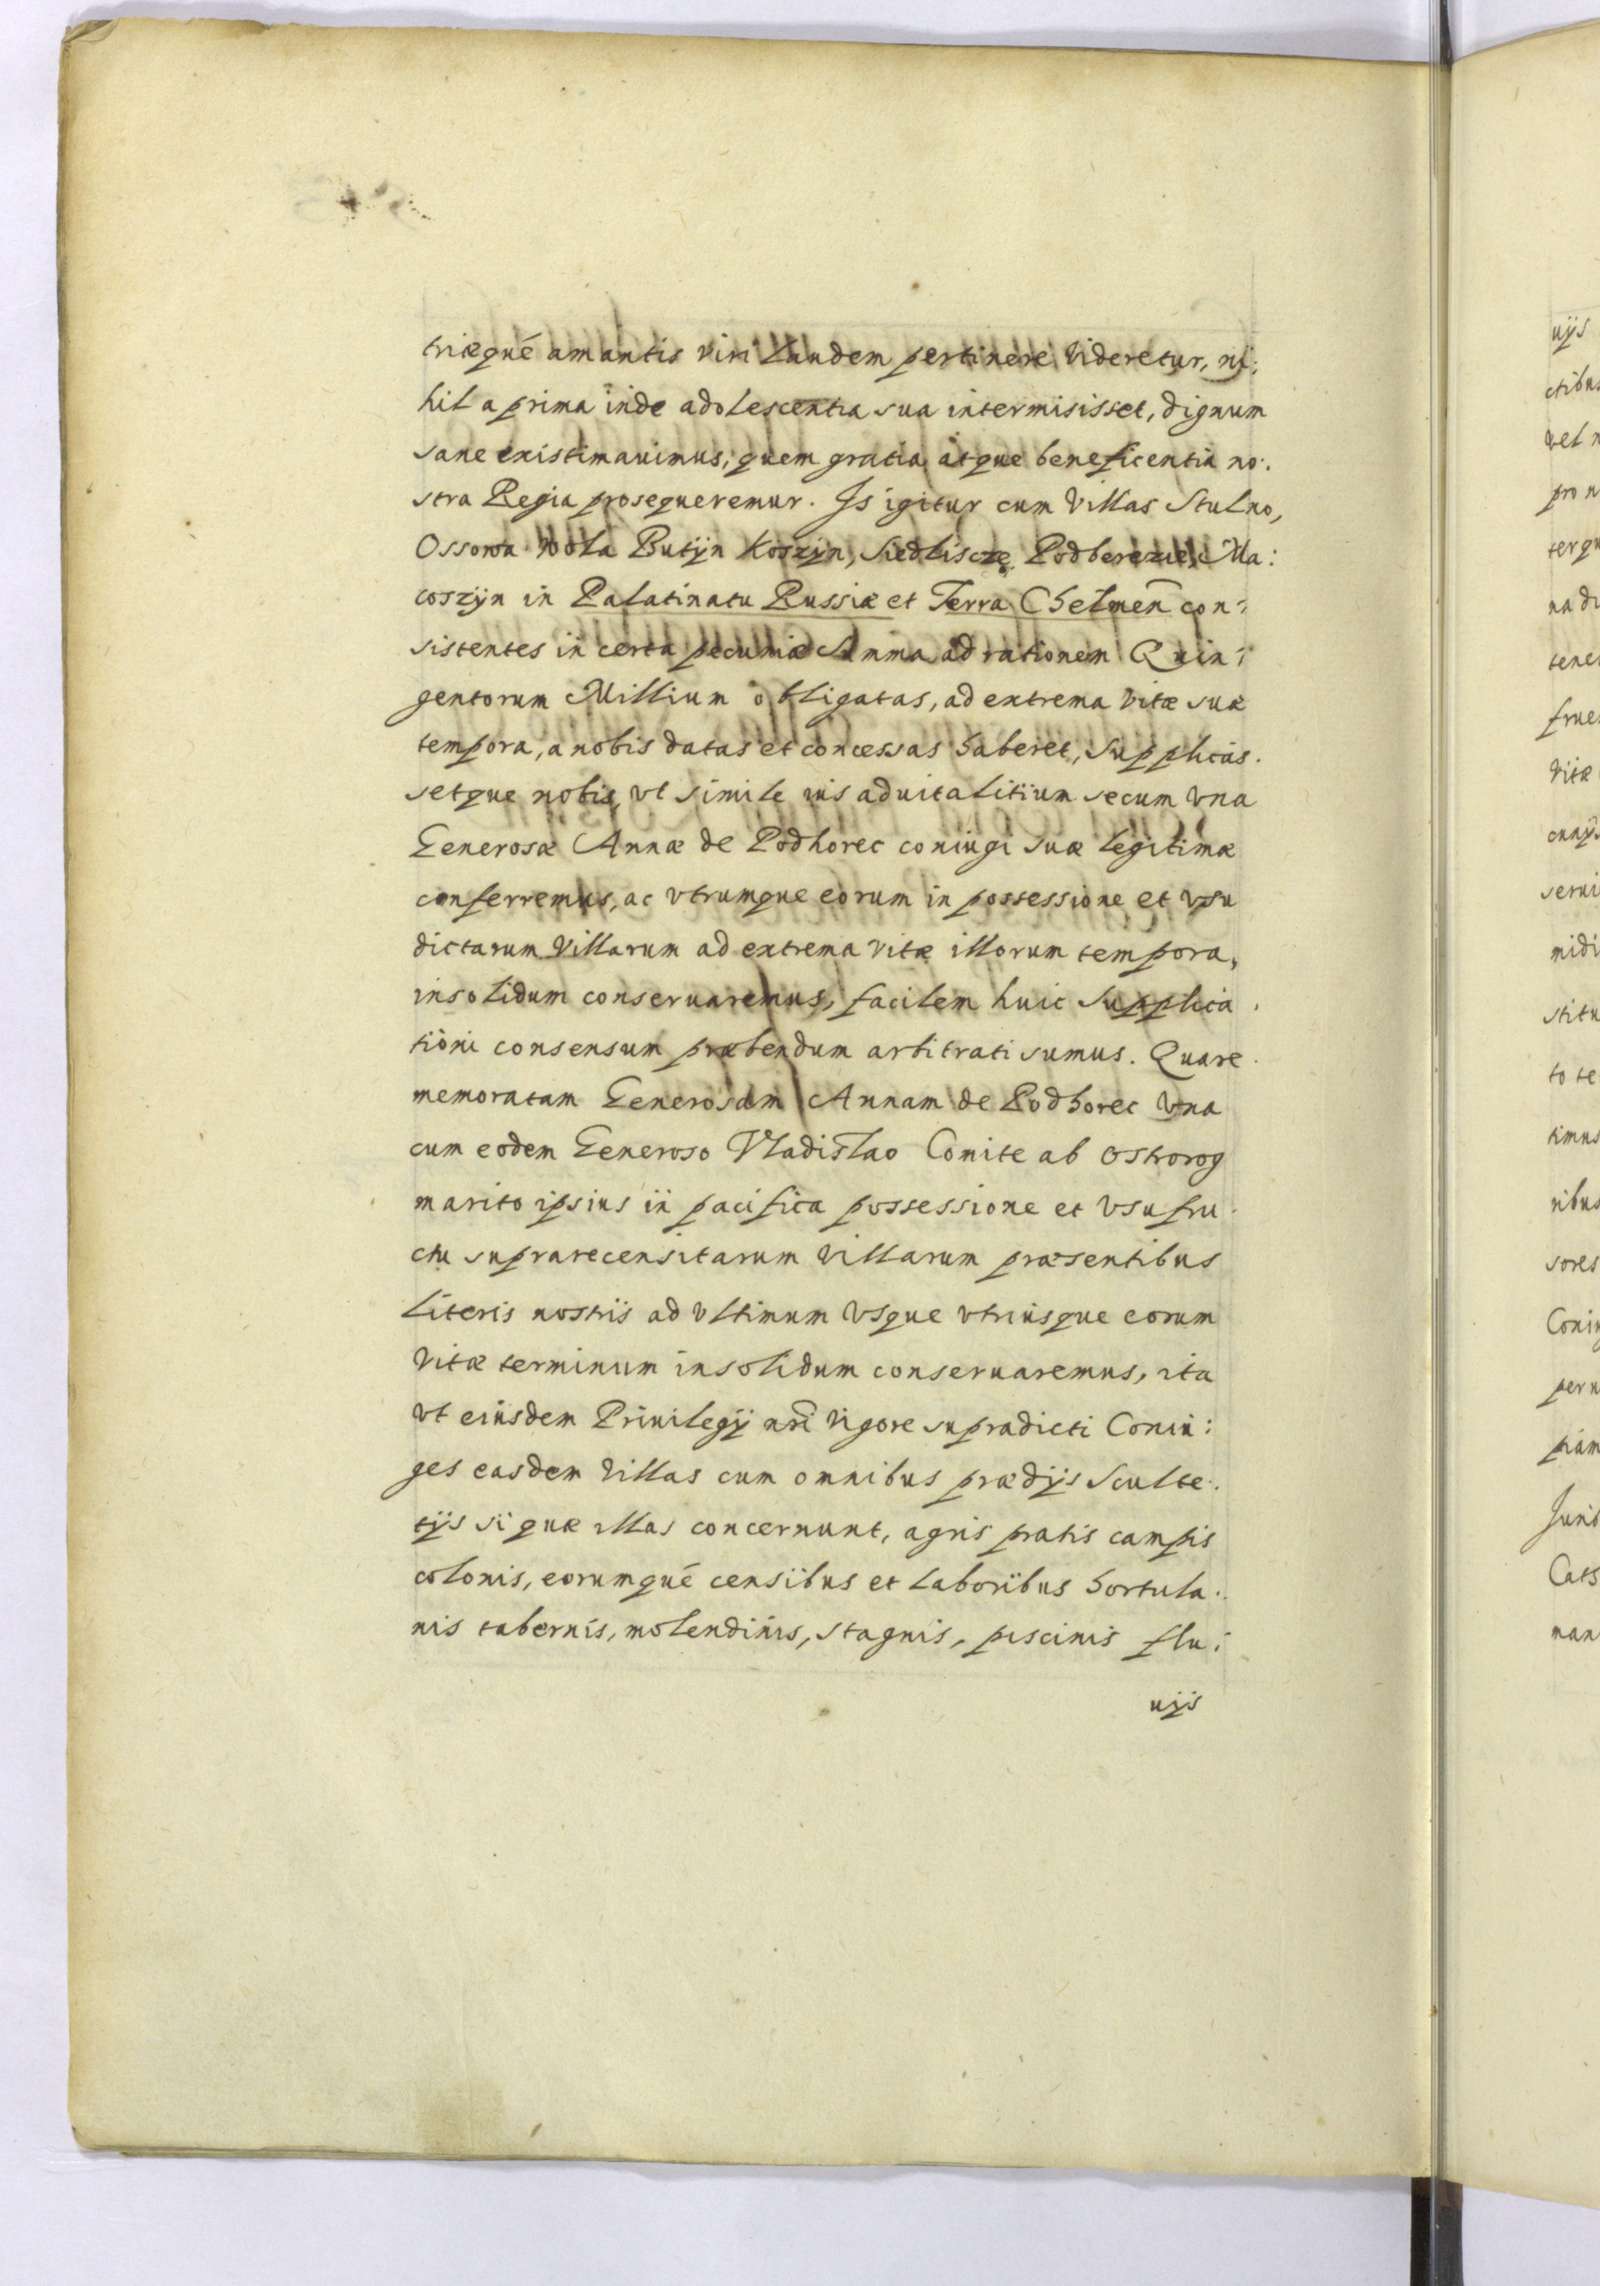 triæqué amantis viri Laudem pertinere Videretur, ni:
hil a prima inde adolescentia sua intermisisset, dignum
sane existimauimus, quem gratia atque beneficentia no:
stra Regia prosequeremur. Is igitur cum Villas Stulno,
Ossowa Wola Butÿn Koszÿn, Siedliscze Podberezie, Ma:
coszÿn in Palatinatu Russiæ et Terra Chelmen̄ con:
sistentes in certa pecuniæ Summa ad rationem Quin:
gentorum Millium obligatas, ad extrema Vitæ suæ
tempora, a nobis datas et concessas haberet, Supplicas:
setque nobis, vt simile ius aduitalitium secum Vna
Generosæ Annæ de Podhorec coniugi suæ legitimæ
conferremus, ac vtrumque eorum in possessione et Vsu
dictarum Villarum ad extrema vitæ illorum tempora,
insolidum conseruaremus, facilem huic Supplica:
tioni consensum præbendum arbitrati sumus. Quare
memoratam Generosam Annam de Podhorec Vna
cum eodem Generoso Vladislao Comite ab Ostrorog
marito ipsius in pacifica possessione et Vsufru:
ctu suprarecensitarum Villarum præsentibus
Literis nostris ad Vltimum Vsque vtriusque eorum
Vitæ terminum insolidum conseruaremus, ita
vt eiusdem Priuilegÿ nr̄i Vigore supradicti Coniu:
ges easdem Villas cum omnibus prædÿs Sculte:
tÿs si quæ illas concernunt, agris pratis campis
colonis, eorumqué censibus et laboribus hortula:
nis tabernis, molendinis, stagnis, piscinis flu:
uÿs